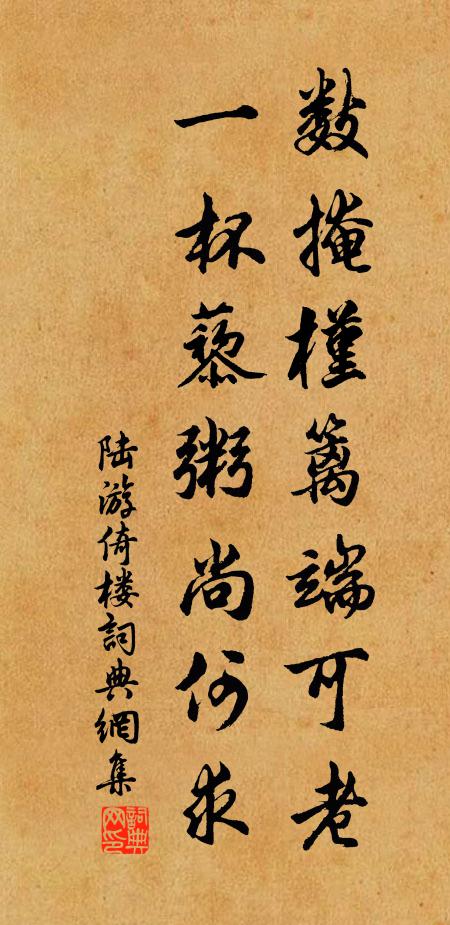 数掩槿篱端可老
一杯藜粥尚何求
陆游倚楼詞典網集
詞典网印